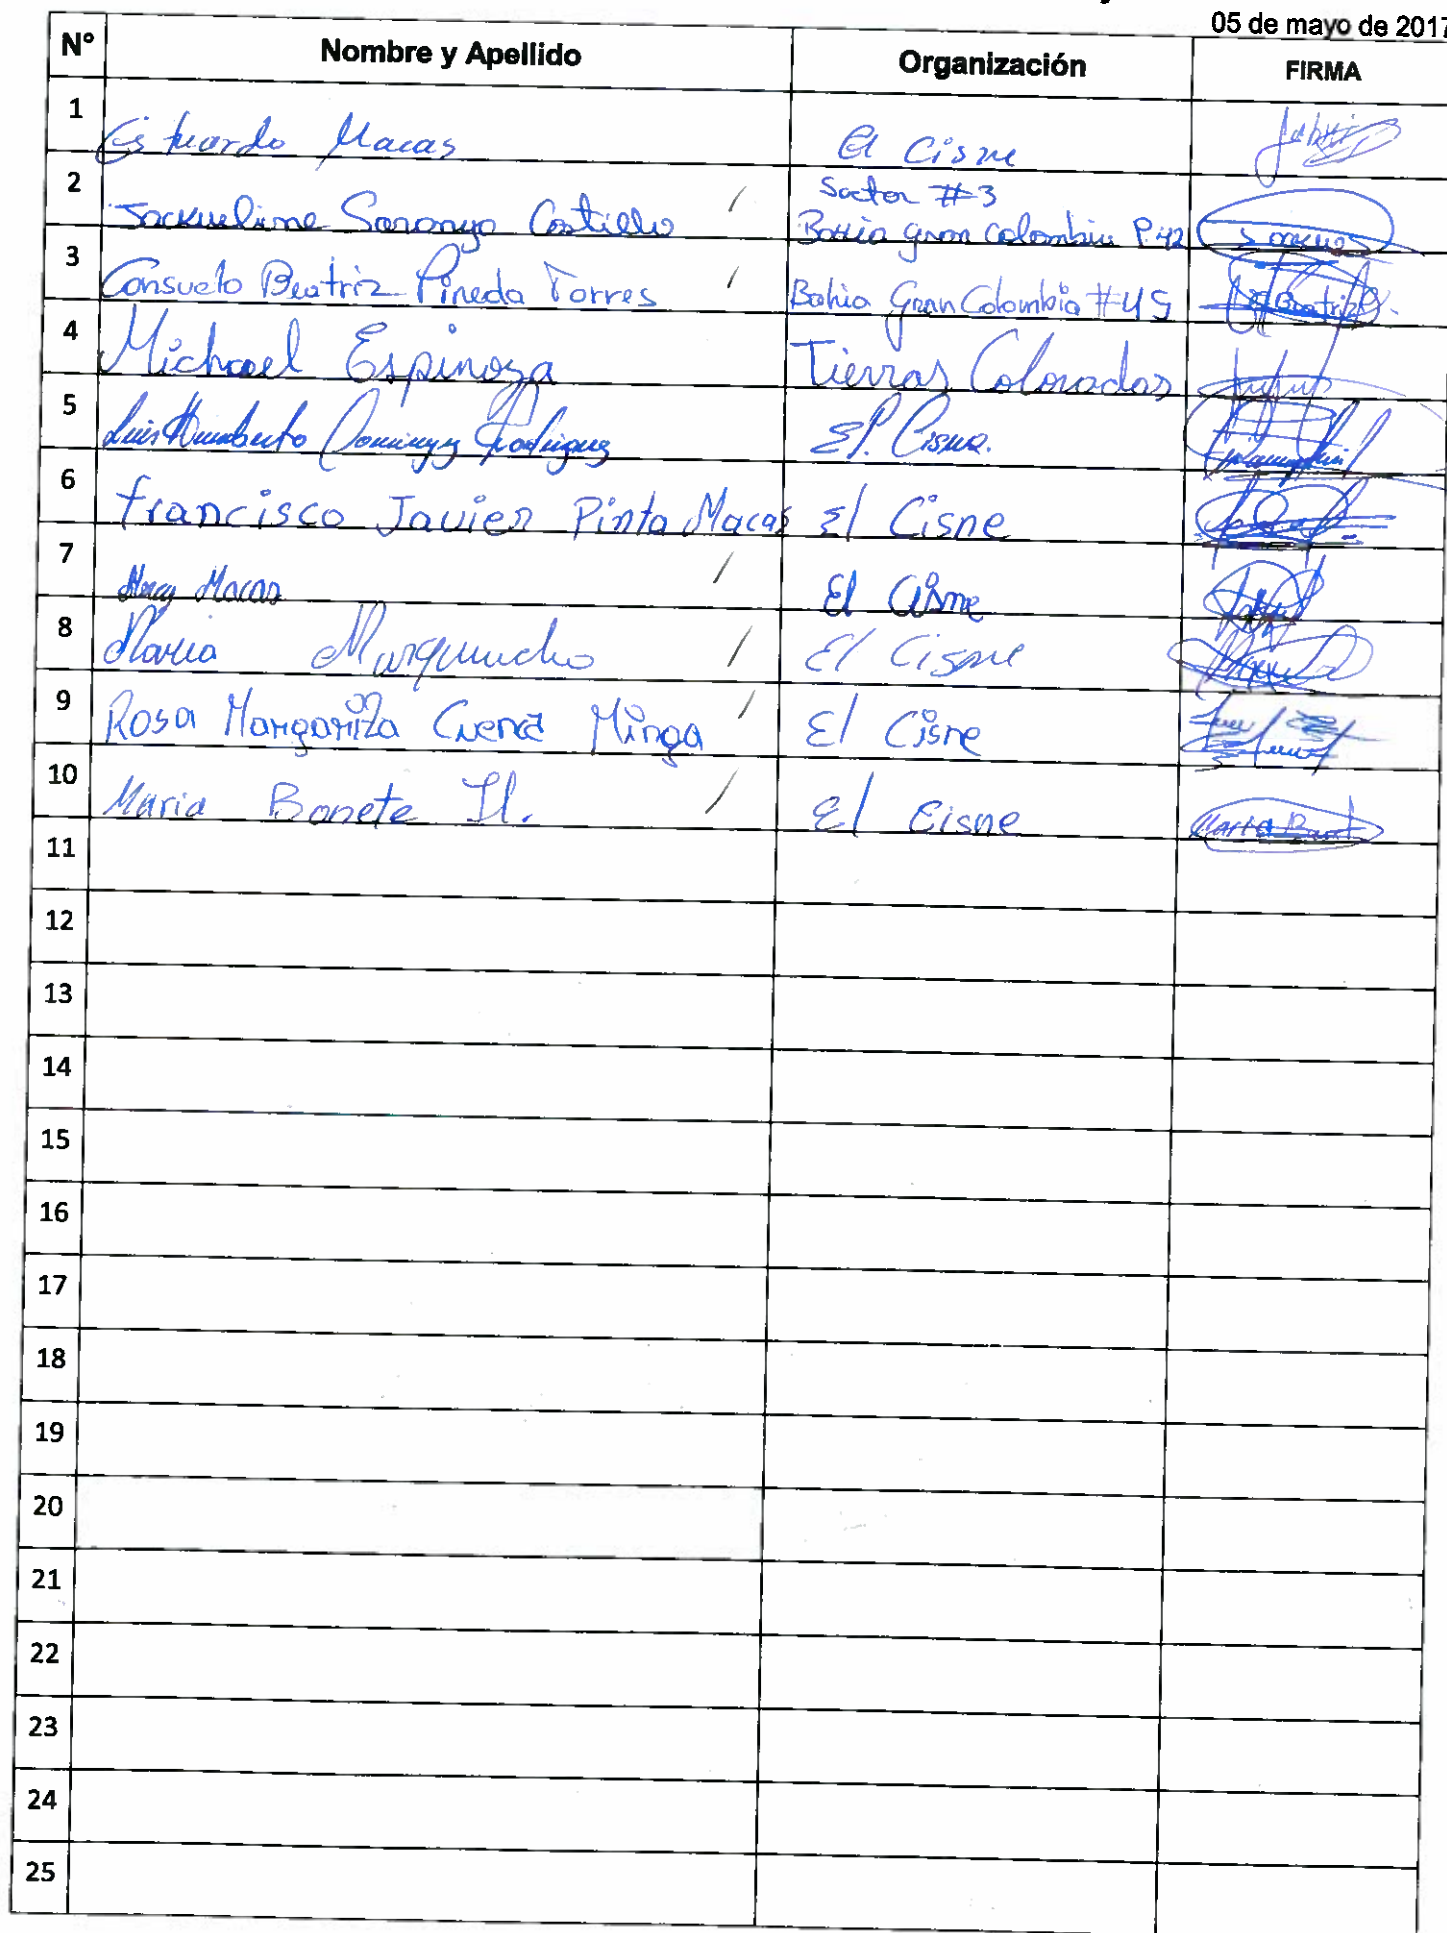 05 de mayo de 2017
N° Nombre y Apellido Organización FIRMA
1 Estuardo Macas El Cisne
2 Jackueline Saranga Castillo / Sector #3
Bahia gran colombia P.42
3 Consuelo Beatriz Pineda Torres / Bahia Gran Colombia #45 Beatriz
4 Michael Espinoza Tierras Coloradas
5 Luis Humberto Dominguez Rodriguez El Cisne.
6 Francisco Javier Pinta Macas El Cisne
7 Macas / El Cisne
8 Maria / El Cisne
9 Rosa Margarita Cuenca Minga / El Cisne
10 Maria Bonete Il. / El Cisne Maria
11
12
13
14
15
16
17
18
19
20
21
22
23
24
25